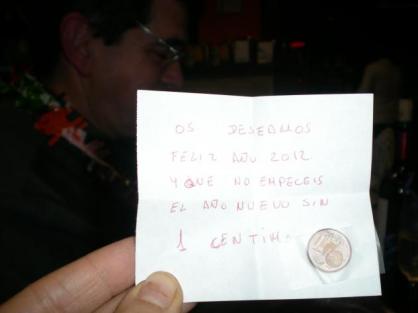 OS DESEAMOS
FELIZ AÑO 2012
Y QUE NO EMPECEIS
EL AÑO NUEVO SIN
1 CENTIMO